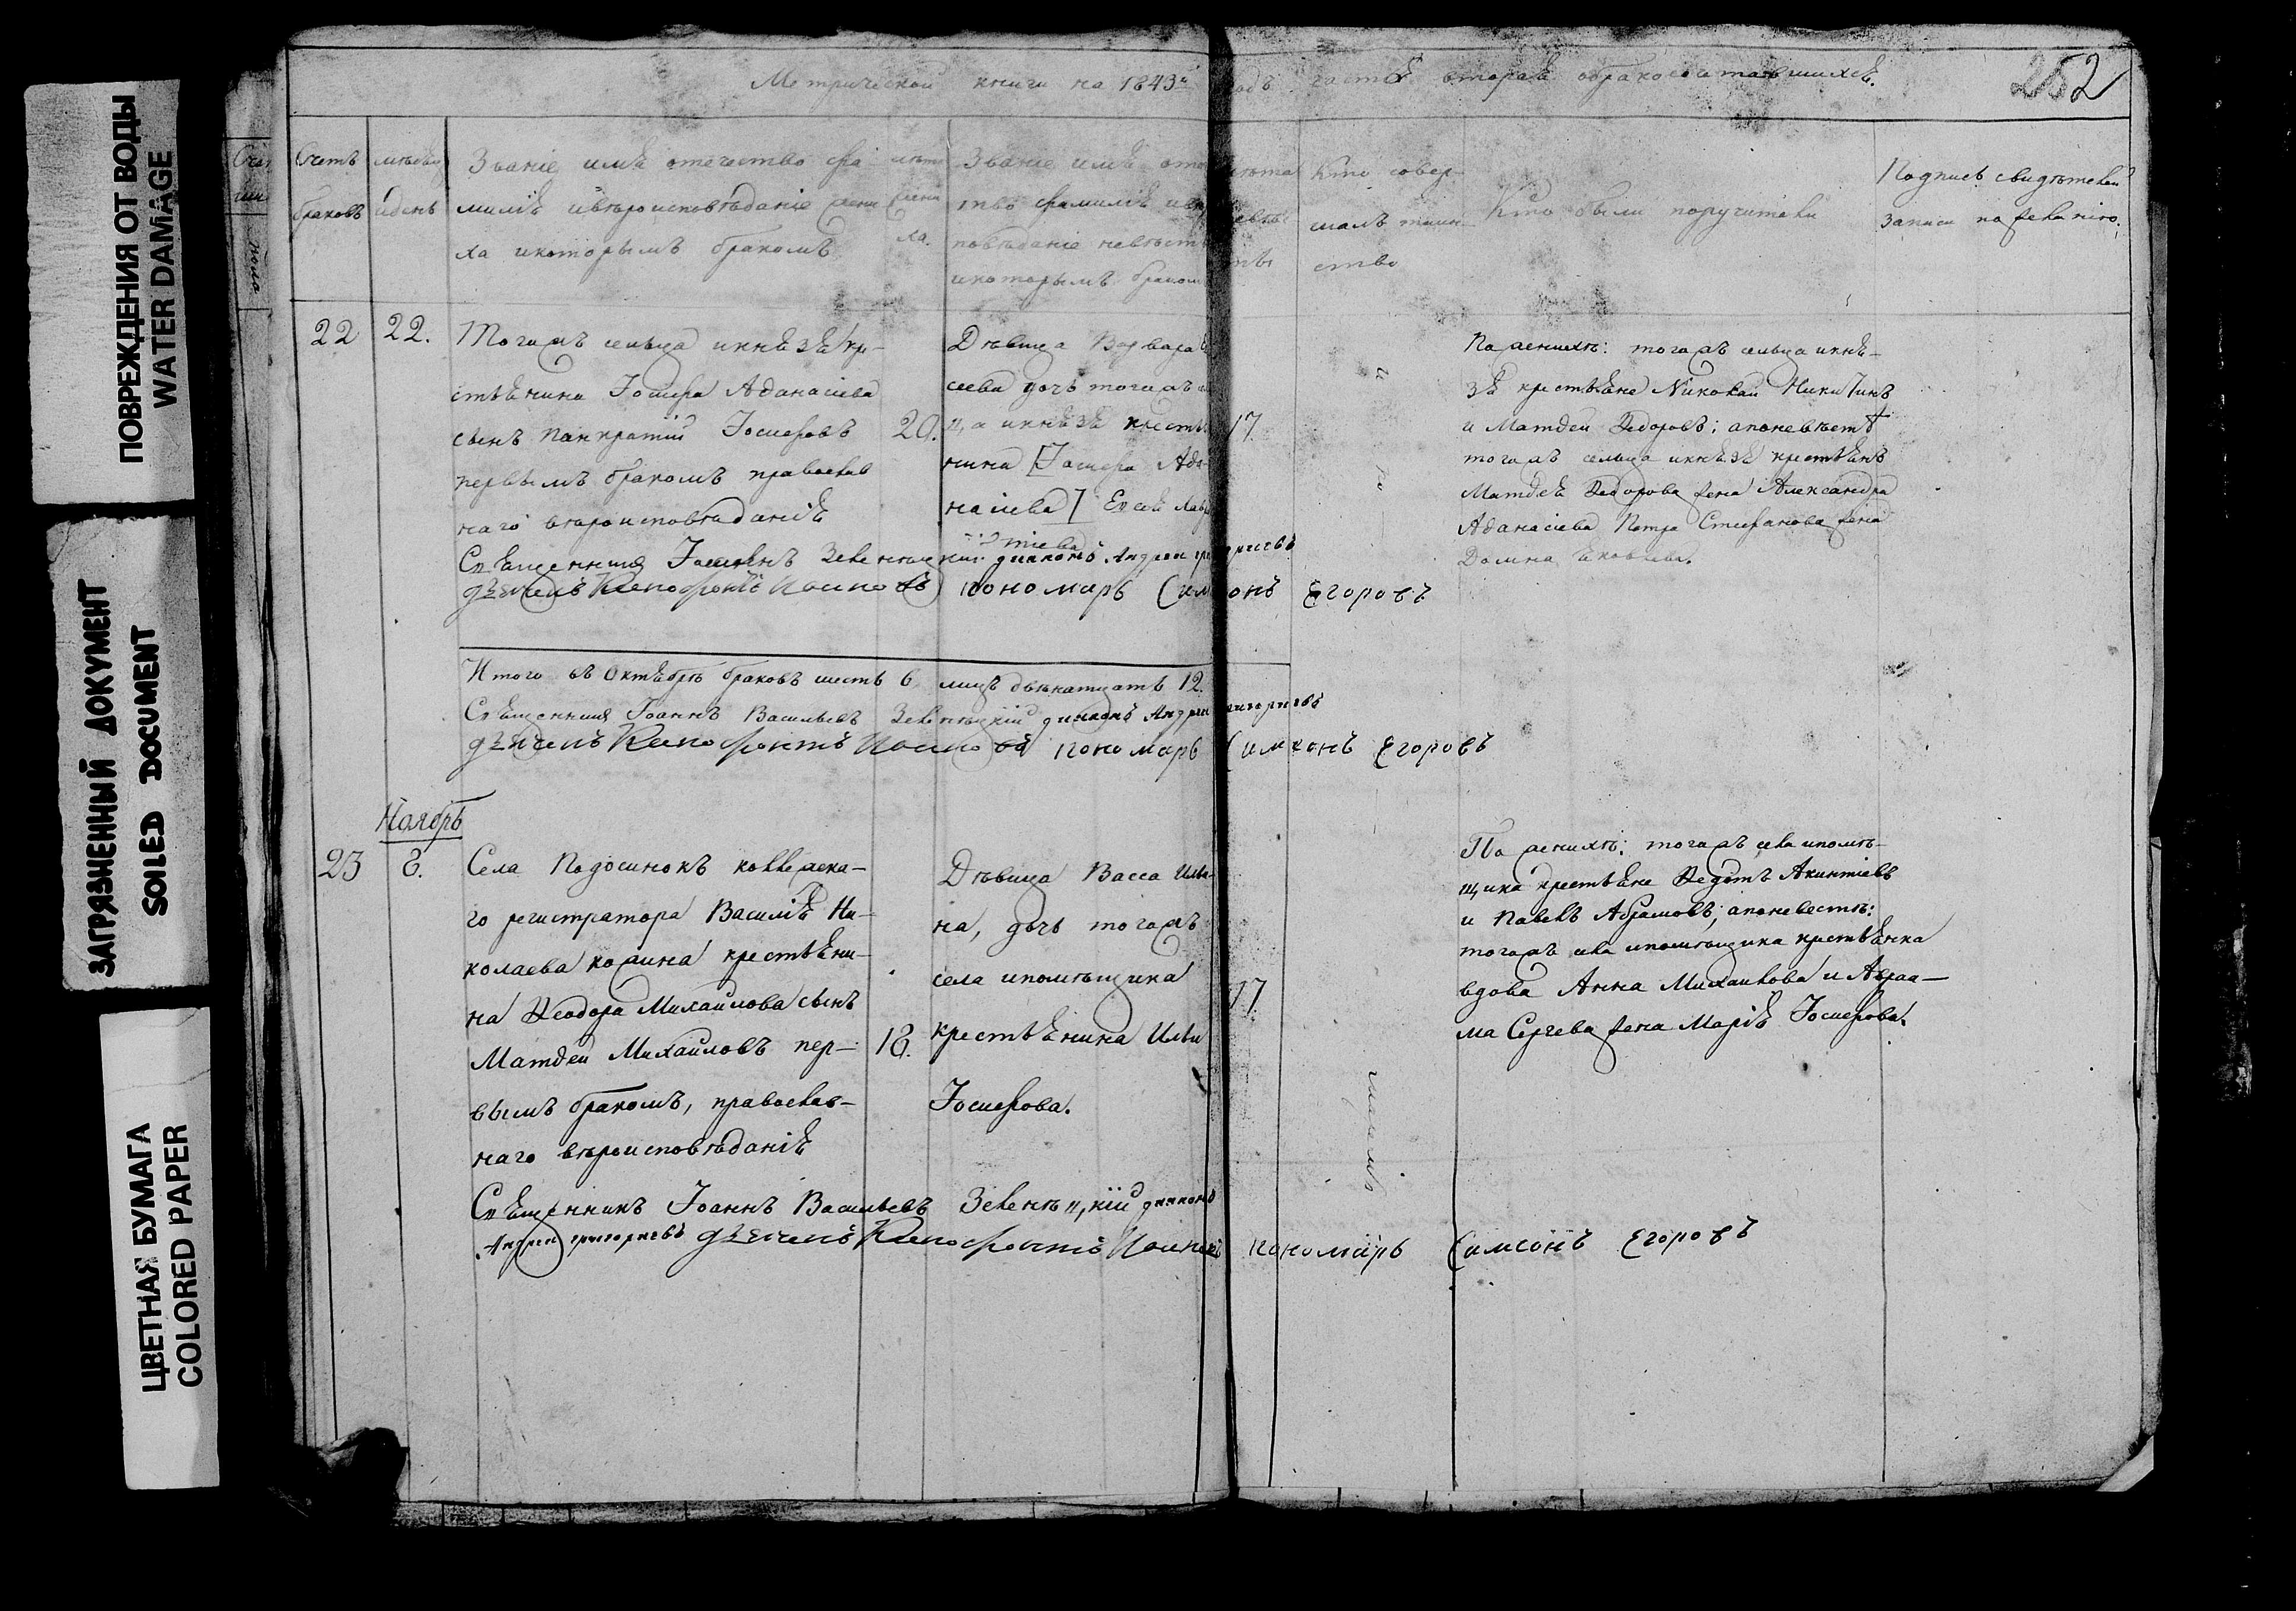 ПОВРЕЖДЕНИЯ ОТ ВОДЫ
WATER DAMAGE
ЗАГРЯЗНЕННЫЙ ДОКУМЕНТ
SOILED DOCUMENT
ЦВЕТНАЯ БУМАГА
COLORED PAPER
Метрической книги на 1843й годъ часть вторая о бракосочетавшихся.
252
Счетъ браковъ
мѣсяцъ и день
Званіе имя отечество фа-
милія и вѣроисповѣданіе жени
ха и которымъ бракомъ
лѣта жени ха.
Званіе имя оте
тво фамилія и вѣ
повѣданіе невѣст
и которымъ браком
лѣта невѣ сты
Кто совер-
шалъ таин-
ство
Кто были поручители
Подпись свидѣтелей
записи по желанію.
22
22.
Тогожъ сельца князя кр-
стьянина Іосифа Аѳанасіева
сынъ Панкратій Іосифовъ
первымъ бракомъ православ
наго вѣроисповѣданія
20.
Дѣвица Варвара
сеева дочь тогожъ
ца князя крестья
нина [Іосифа Аѳа-
насіева] Елсея Лавр
тіева
17.
По женихѣ: тогожъ сельца кня-
зя крестьяне Николай Никитинъ
и Матѳей Ѳедоровъ; а по невѣстѣ
тогожъ сельца князя крестьянъ
Матѳея Ѳедорова жена Александра
Аѳанасіева Петра Стефанова жена
Домна Яковлева.
Священникъ Іоаннъ Зеленецкій діаконъ Андрей григорьевъ
дьячекъ Ксенофонтъ Іоанновъ пономарь Симеонъ Егоровъ
Итого въ Октябрѣ браковъ шесть 6 лицъ двѣнатцать 12.
Священникъ Іоаннъ Васильевъ Зеленецкій діаконъ Андрей григорьевъ
дьячекъ Ксенофонтъ Іоанновъ пономарь Симеонъ Егоровъ
Ноябрь
23
8.
Села Подосинокъ коллежска-
го регистратора Василія Ни-
колаева Кожина крестьяни-
на Ѳеодора Михайлова сынъ
Матѳей Михайловъ пер-
вымъ бракомъ, православ-
наго вѣроисповѣданія
18.
Дѣвица Васса Ильи-
на, дочь тогожъ
села и помѣщика
крестьянина Ильи
Іосифова.
17.
По женихѣ: тогожъ села и помѣ-
щика крестьяне Ѳедотъ Акинтіевъ
и Павелъ Абрамовъ; а по невестѣ:
тогожъ села и помѣщика крестьянка
вдова Анна Михайлова и Авраа-
ма Сергева жена Марія Іосифова.
Священникъ Іоаннъ Васильевъ Зеленецкій діаконъ
Андрей григорьевъ дьячекъ Ксенофонтъ Іоанновъ пономарь Симеонъ Егоровъ